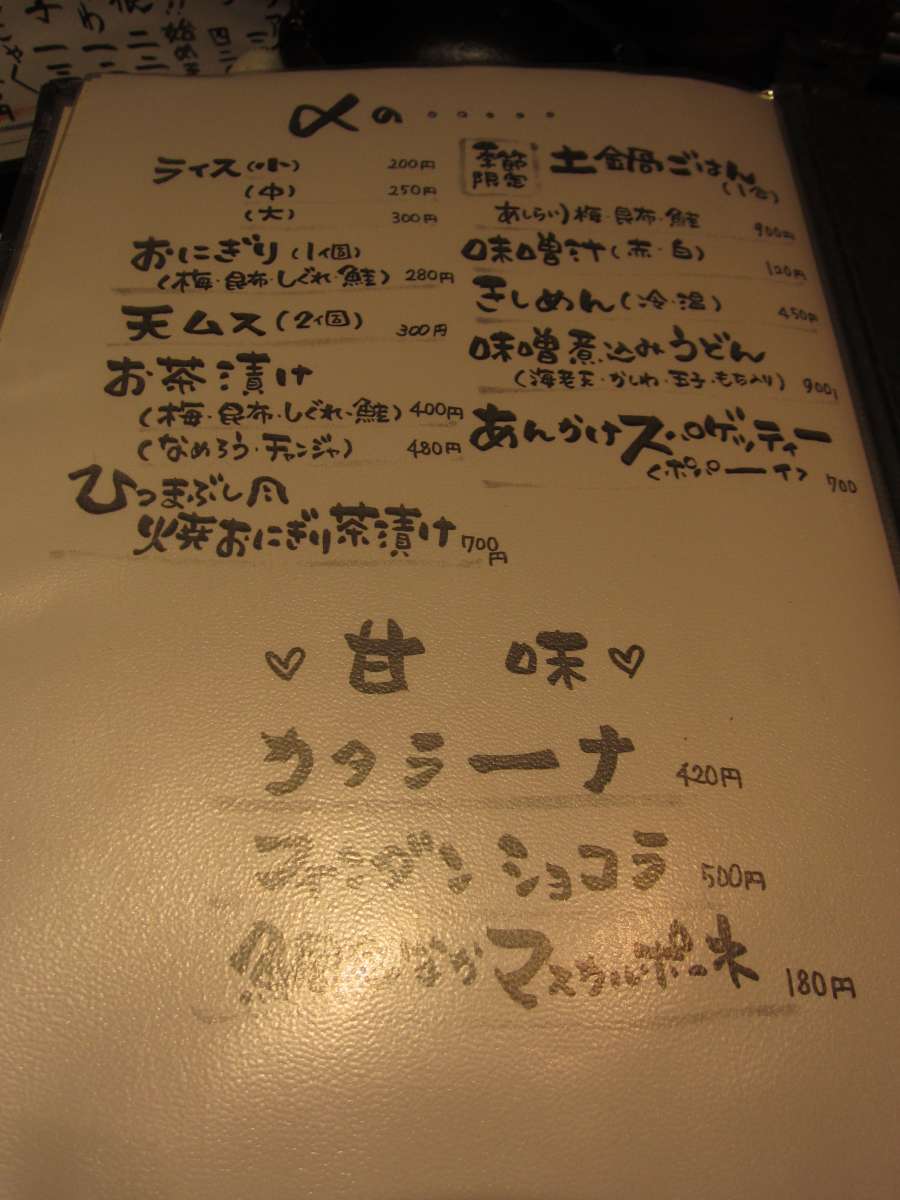 〆の・・・・・
ライス(小) 200円
(中) 250円
(大) 300円
おにぎり(1ヶ)
(梅・昆布・しぐれ・鮭) 280円
天ムス(2ヶ) 300円
お茶漬け
(梅・昆布・しぐれ・鮭) 400円
(なめろう・チャンジャ) 480円
ひつまぶし風
焼おにぎり茶漬け 700円
季節限定 土鍋ごはん
(1合)
あしらい)梅・昆布・鮭 900円
味噌汁(赤・白) 120円
きしめん(冷・温) 450円
味噌煮込みうどん
(海老天・かしわ・玉子・もち入り) 900
あんかけスパゲッティー
<ポパーイ> 700
♡甘味♡
カタラーナ 420円
フォンダンショコラ 500円
マスカルポーネ 180円